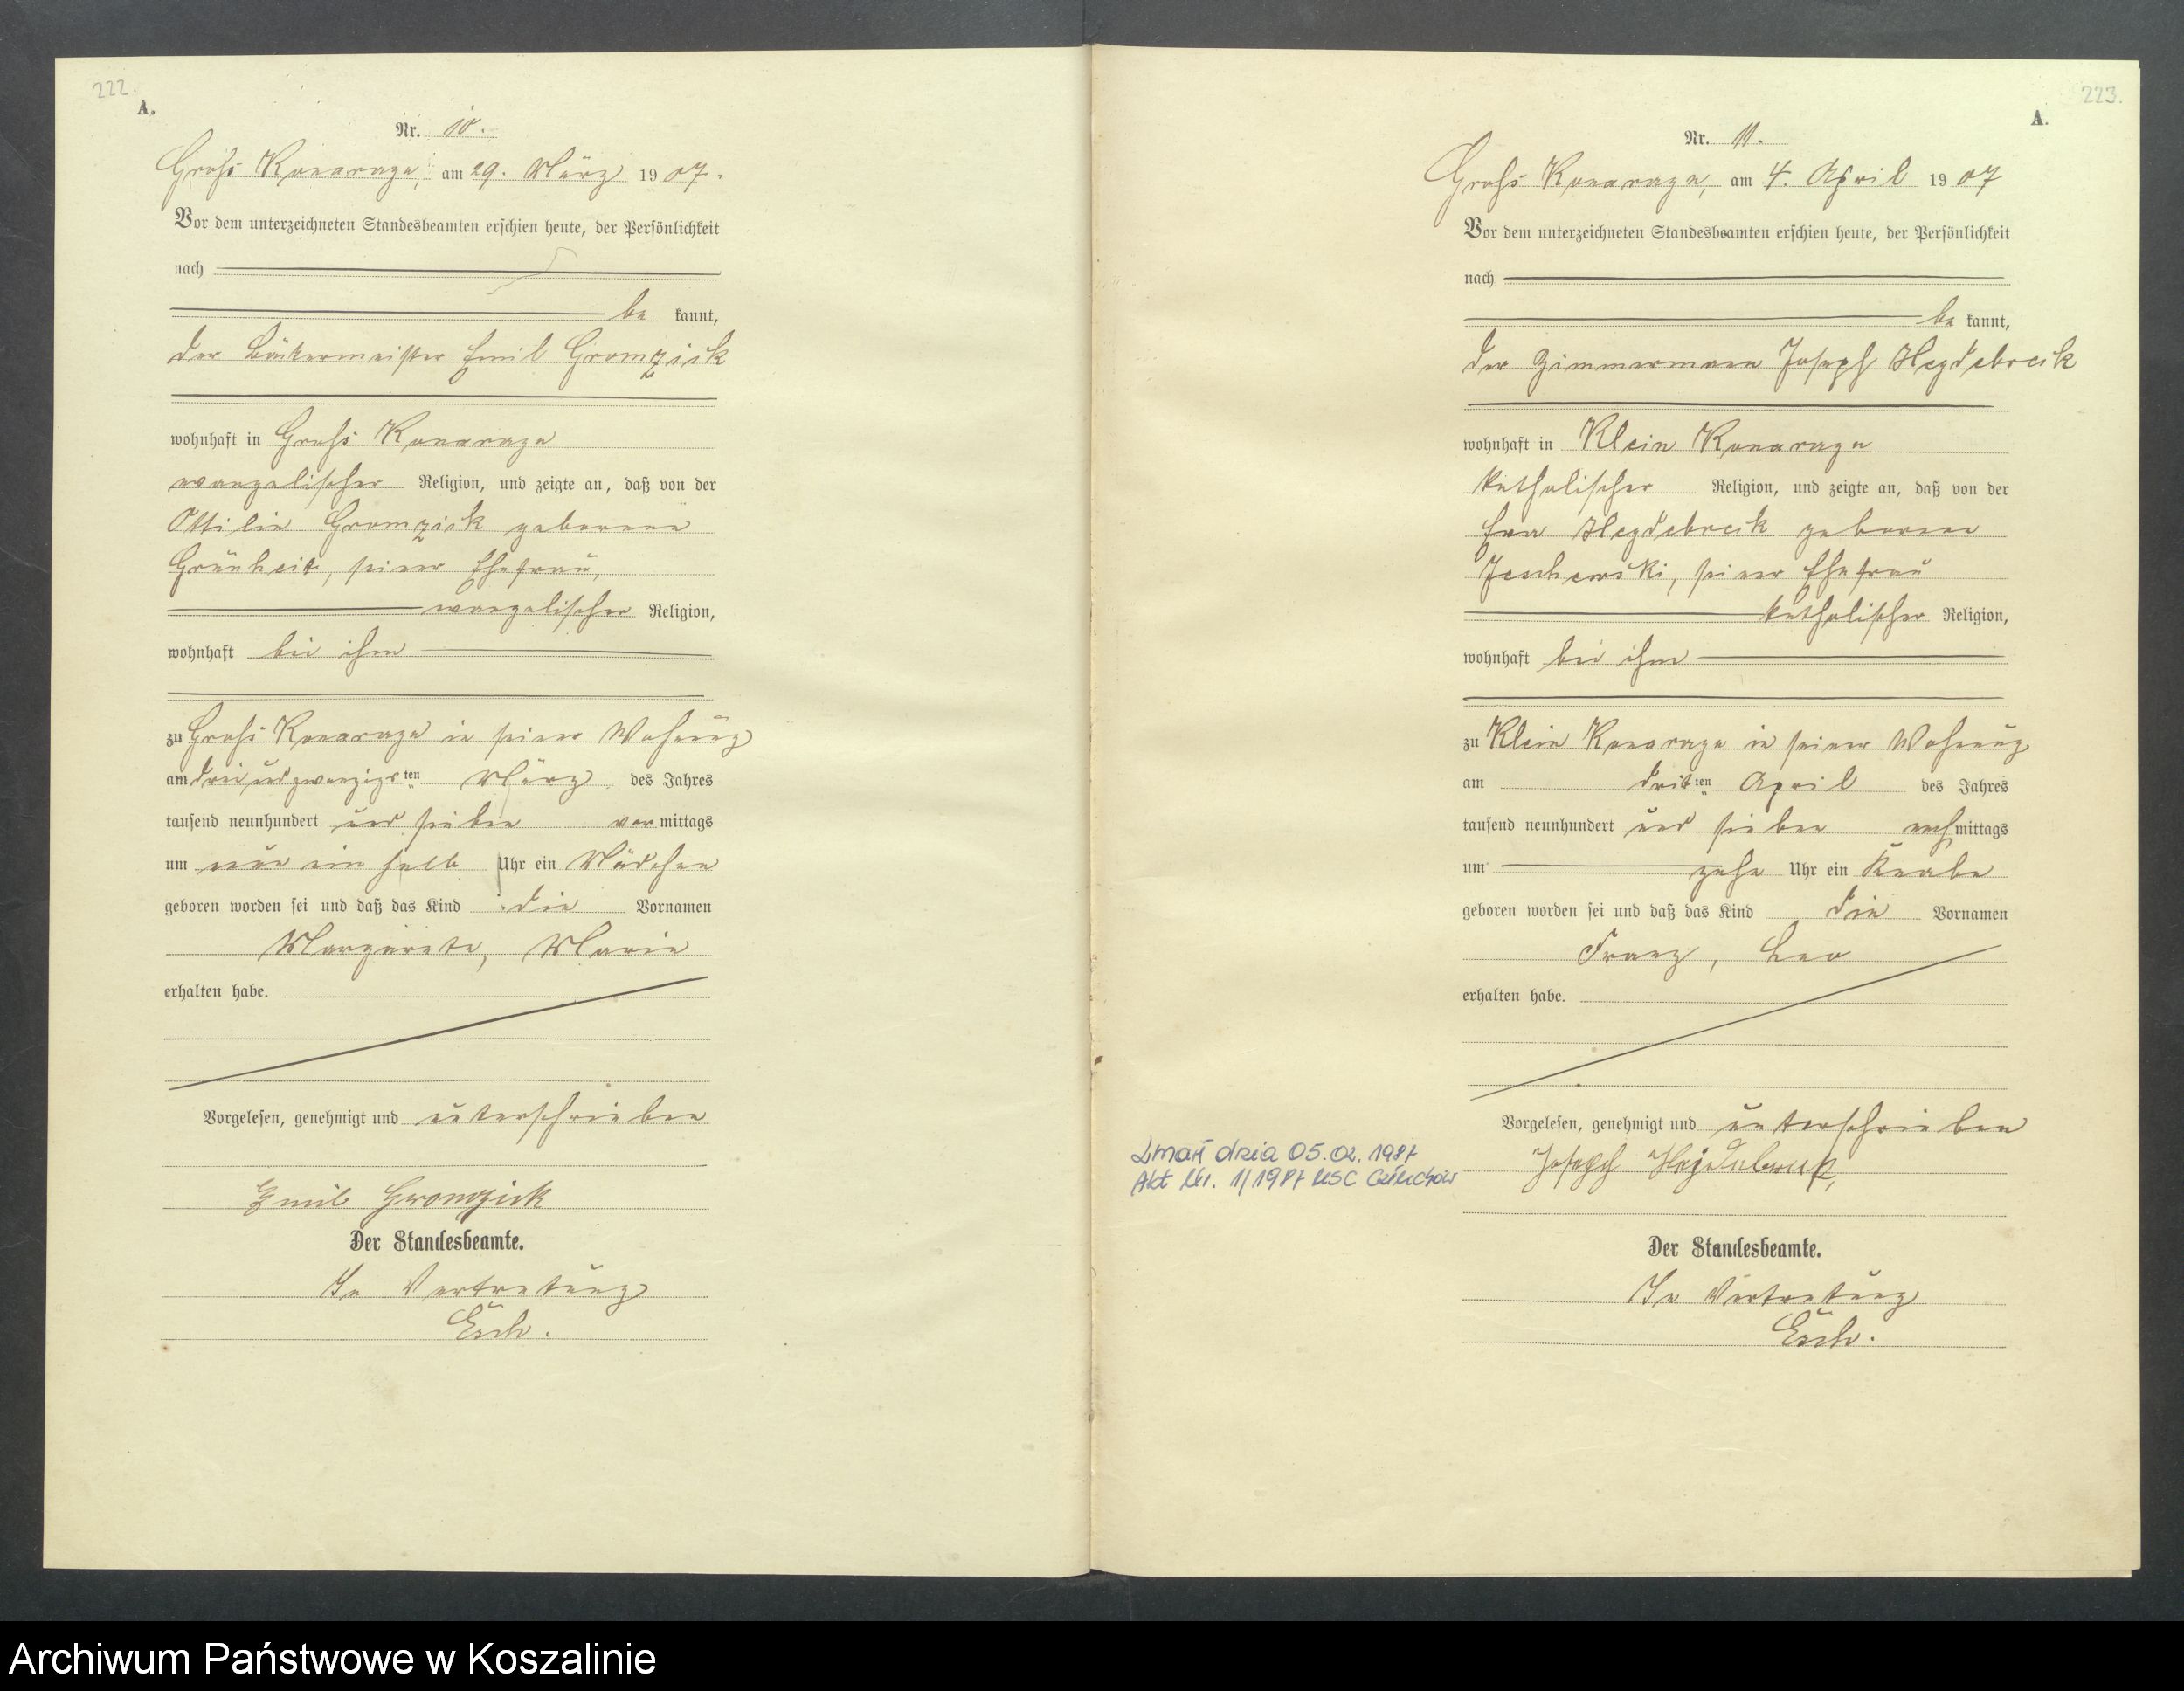 222.
A.
Nr. 10.
Groß Konarzyn, am 29. März 1907.
Vor dem unterzeichneten Standesbeamten erschien heute, der Persönlichkeit
nach
be kannt,
der Bäckermeister Emil Gromzick
wohnhaft in Groß Konarzyn
evangelischer Religion, und zeigte an, daß von der
Ottilie Gromzick geborene
Grünheit, seiner Ehefrau,
evangelischer Religion,
wohnhaft bei ihm
zu Groß Konarzyn in seiner Wohnung
am drei und zwanzigsten März des Jahres
tausend neunhundert und sieben vormittags
um neun ein halb Uhr ein Mädchen
geboren worden sei und daß das Kind die Vornamen
Margarete, Marie
erhalten habe.
Vorgelesen, genehmigt und unterschrieben
Emil Gromzick
Der Standesbeamte.
In Vertretung
223.
A.
Nr. 11.
Groß Konarzyn, am 4. April 1907
Vor dem unterzeichneten Standesbeamten erschien heute, der Persönlichkeit
nach
be kannt,
der Zimmermann Joseph Heydebreck
wohnhaft in Klein Konarzyn
katholischer Religion, und zeigte an, daß von der
Eva Heydebreck geborene
seiner Ehefrau
katholischer Religion,
wohnhaft bei ihm
zu Klein Konarzyn in seiner Wohnung
am dritten April des Jahres
tausend neunhundert und sieben nachmittags
um zehn Uhr ein Knabe
geboren worden sei und daß das Kind die Vornamen
Franz, Leo
erhalten habe.
Vorgelesen, genehmigt und unterschrieben
Joseph
Zmarł dnia 05.02.1987
Akt Nr. 1/1987 USC Człuchów
Der Standesbeamte.
In Vertretung
Archiwum Państwowe w Koszalinie